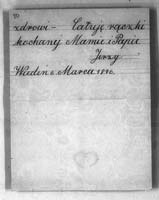 zdrowi – Całuję rączki
kochanej Mamie i Papie
Jerzy
Wiedeń 6. Marca